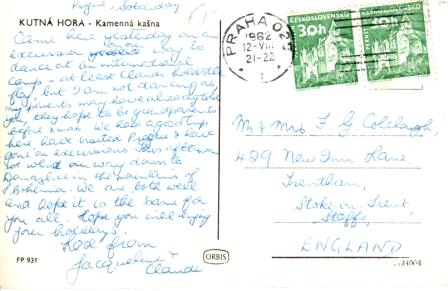 Prague, Saturday
KUTNÁ HORA - Kamenná kašna
Came here yesterday on an
excursion on way to
dance at an international
camp - at least Claude
but I am not dancing as
my parents may have already told
you, they hope to be grandparents
before Xmas. We had a good trip
here have visited Prague & have
gone on excursions. This afternoon
we wind our way down to
Domazlice in the mountains of
S. Bohemia. We are both well
and hope it is the same for
you all. Hope you will enjoy
your holiday.
Love from
Jacqueline &
Claude
FP 931
ORBIS
PRAHA 025
1962
12-VIII
21-22
ČESKOSLOVENSKO
30h
ČESKOSLOVENSKO
30h
Mr & Mrs F G Colclough
429 New Inn Lane
Trentham,
Stoke-on-Trent,
Staffs,
ENGLAND